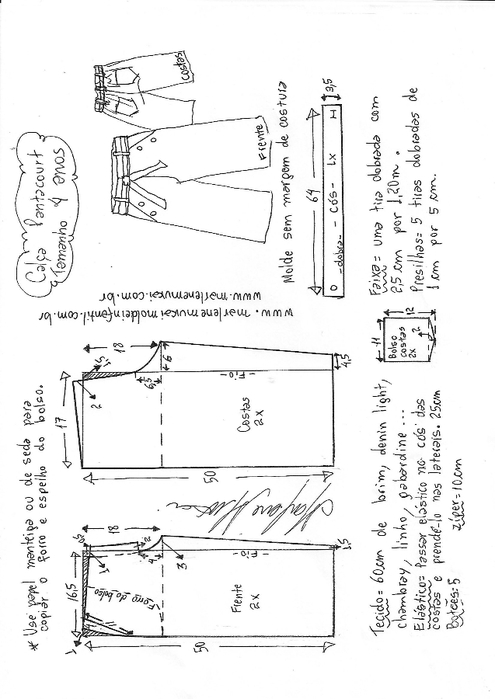 Calça pantacourt
Tamanho 4 anos
costas
Frente
Molde sem margem de costura
3,5
64
-dobra- - cós- 1x H
www.marlenemukai.com.br
www.marlenemukaimoldeinfantil.com.br
Faixa= uma tira dobrada com
2,5 cm por 1,20m.
Presilhas= 5 tiras dobradas de
1 cm por 5 cm.
* Use papel manteiga ou de seda para
copiar o forro e espelho do bolso.
17
18
2
6
6,5
-Fio-
Costas
2x
4,5
50
11
12
Bolso
costas
2x
2
16,5
18
1
3
Forro do bolso
-Fio-
Frente
2x
50
Tecido= 60cm de brim, denin light,
chambray, linho, gabardine ...
Elástico= Passar elástico no cós das
costas e prende-lo nas laterais. 25cm
Botões:5 ziper=10cm